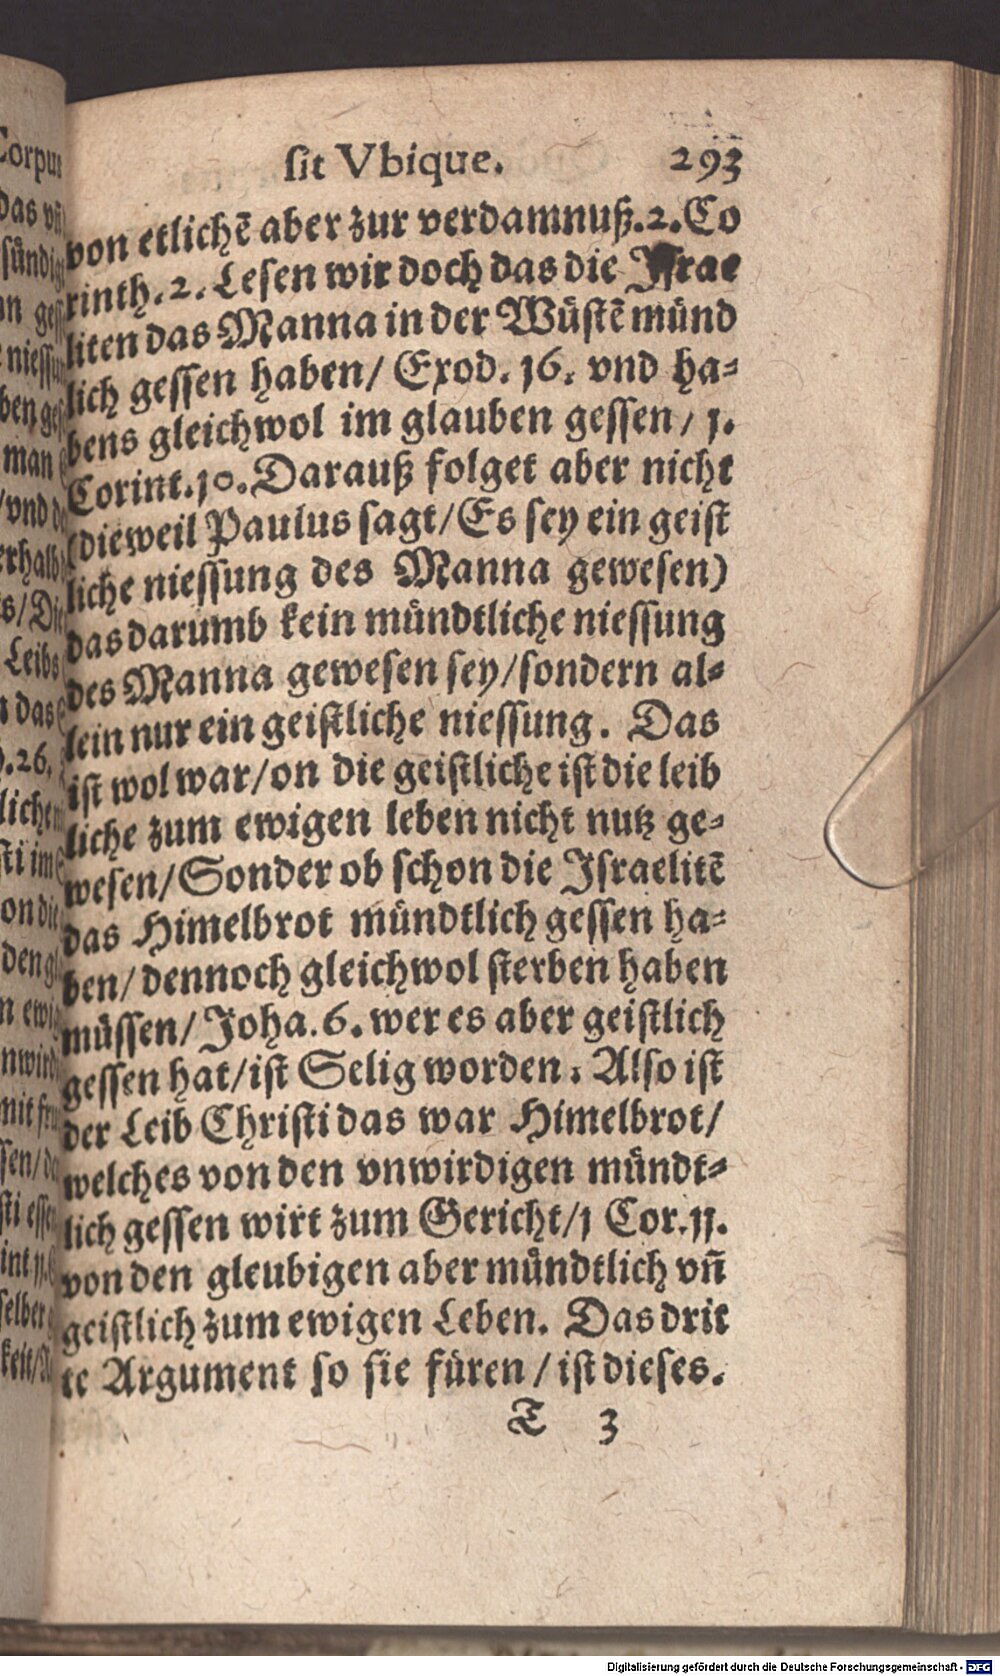 sit Vbique. 293
von etlichē aber zur verdamnuß. 2. Co
rinth. 2. Lesen wir doch das die Israe
liten das Manna in der Wüstē münd
lich gessen haben/ Exod. 16. vnd ha-
bens gleichwol im glauben gessen/ 1.
Corint. 10. Darauß folget aber nicht
(dieweil Paulus sagt/ Es sey ein geist
liche niessung des Manna gewesen)
das darumb kein mündtliche niessung
des Manna gewesen sey/ sondern al-
lein nur ein geistliche niessung. Das
ist wol war/ on die geistliche ist die leib
liche zum ewigen leben nicht nutz ge-
wesen/ Sonder ob schon die Israelitē
das Himelbrot mündtlich gessen ha-
ben/ dennoch gleichwol sterben haben
müssen/ Joha. 6. wer es aber geistlich
gessen hat/ ist Selig worden. Also ist
der Leib Christi das war Himelbrot/
welches von den vnwirdigen mündt-
lich gessen wirt zum Gericht/ 1 Cor. 11.
von den gleubigen aber mündtlich vn̄
geistlich zum ewigen Leben. Das drit
te Argument so sie füren/ ist dieses.
T 3
Digitalisierung gefördert durch die Deutsche Forschungsgemeinschaft - DFG